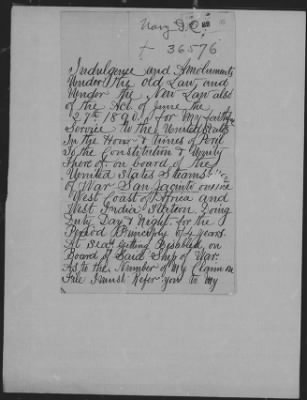 Navy I.C.
+ 36576
Indulgence and Amoluments
Under the old Law, and
Under the New Law also
of the Act of June the
27th 1890, for My faithful
Service to the United States
In the Hour & times of Peril
To the Constitution & Unity
There of. on board of The
United States Steams
of War San Jacinto on
West Coast of Africa and
West India Station Doing
Duty Day & Night for the
Period Principly of 4 years.
At Sea. Getting Disabled on
Board of Said Ship of War.
As to the Number of My Claim on
File I must Refer you to my